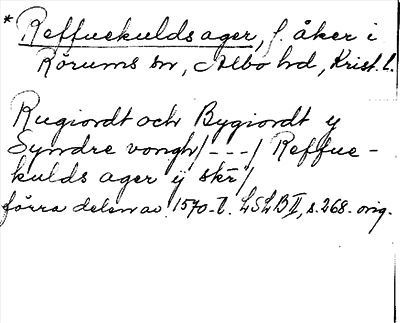 * Reffuekulds ager, f. åker i
Rörums sn, Albo hd, Krist. l.
Rugiordt och Bygiordt y
Syndre vongh/---/ Reffue-
kulds ager ij skr/
förra delen av 1570-t. LSLB II, s. 268. orig.